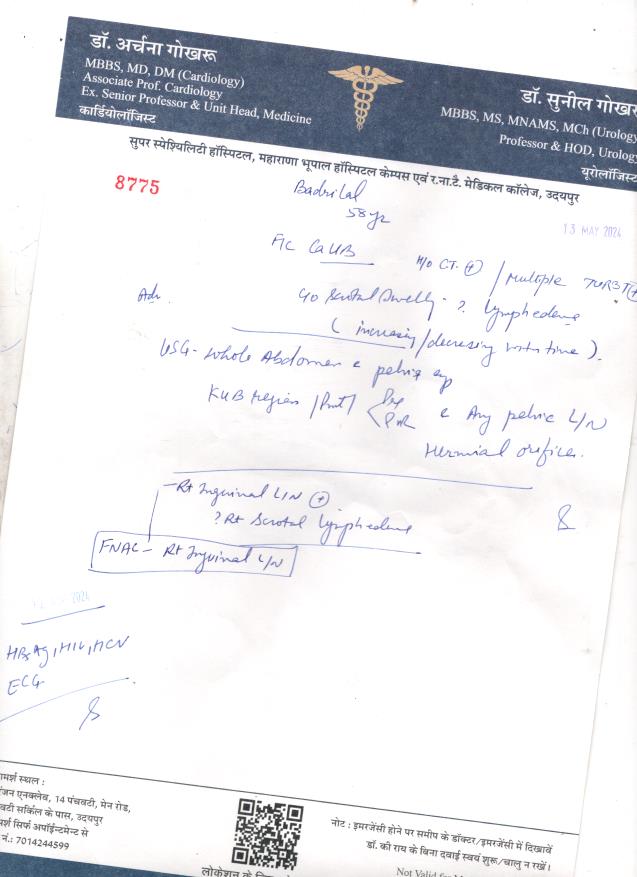 डॉ. अर्चना गोखरू
MBBS, MD, DM (Cardiology)
Associate Prof. Cardiology
Ex. Senior Professor & Unit Head, Medicine
कार्डियोलॉजिस्ट
डॉ. सुनील गोखरू
MBBS, MS, MNAMS, MCh (Urology
Professor & HOD, Urology
यूरोलॉजिस्ट
सुपर स्पेश्यिलिटी हॉस्पिटल, महाराणा भूपाल हॉस्पिटल केम्पस एवं र.ना.टै. मेडिकल कॉलेज, उदयपुर
8775
Badrilal
58 yr
13 MAY 2024
F/C Ca UB
H/O CT. (+) / Multiple TURBT (+
Adv.
c/o Scrotal Swelly - ? Lymphedema
( increasing/decreasing with time ).
USG- whole Abdomen c pelvis
KUB region / Prost / Pre
PVR c Any pelvic L/N
Hernial orifices.
- Rt Inguinal L/N (+)
? Rt Scrotal lymphedema
FNAC - Rt Inguinal L/N
2024
HBsAg, HIV, HCV
ECG
ामर्श स्थल :
ंजन एनक्लेव, 14 पंचवटी, मेन रोड,
वटी सर्किल के पास, उदयपुर
मर्श सिर्फ अपॉईन्टमेन्ट से
नं.: 7014244599
नोट : इमरजेंसी होने पर समीप के डॉक्टर/इमरजेंसी में दिखावें
डॉ. की राय के बिना दवाई स्वयं शुरू/चालु न रखें।
लोकेशन के
Not Valid for M